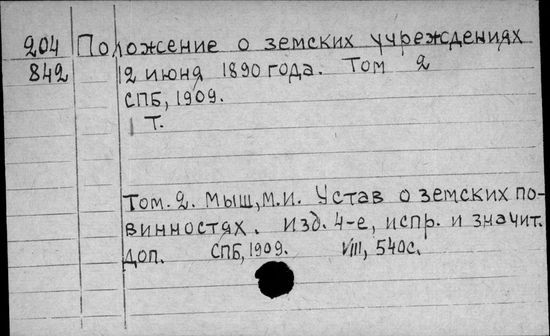 204 Положение о земских учреждениях
842 12 июня 1890 года. Том 2
СПБ, 1909.
1 Т.
Том. 2. Мыш, М.И. Устав о земских по-
винностях. Изд. 4-е, испр. и значит.
доп. СПБ, 1909. VIII, 540с.